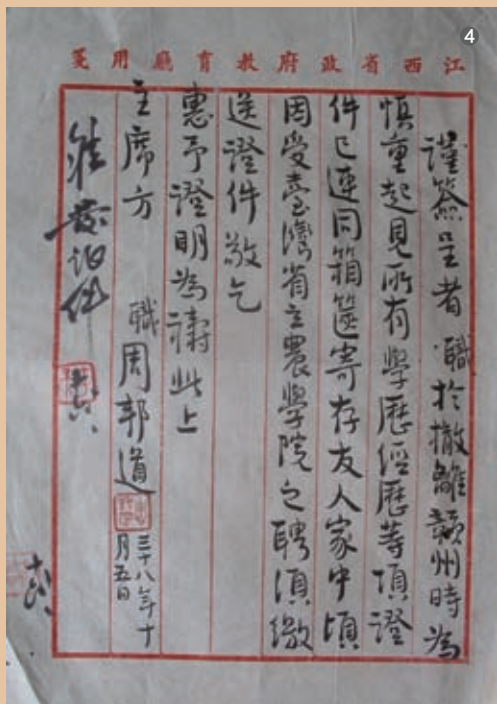 4
江西省政府教育廳用箋
謹簽呈者職於撤離贛州時為
慎重起見所有學歷經歷等項證
件已連同箱篋寄存友人家中頃
因受臺灣省立農學院之聘須繳
送證件敬乞
惠予證明為禱此上
主席方
職周邦道
三十八年十
月五日